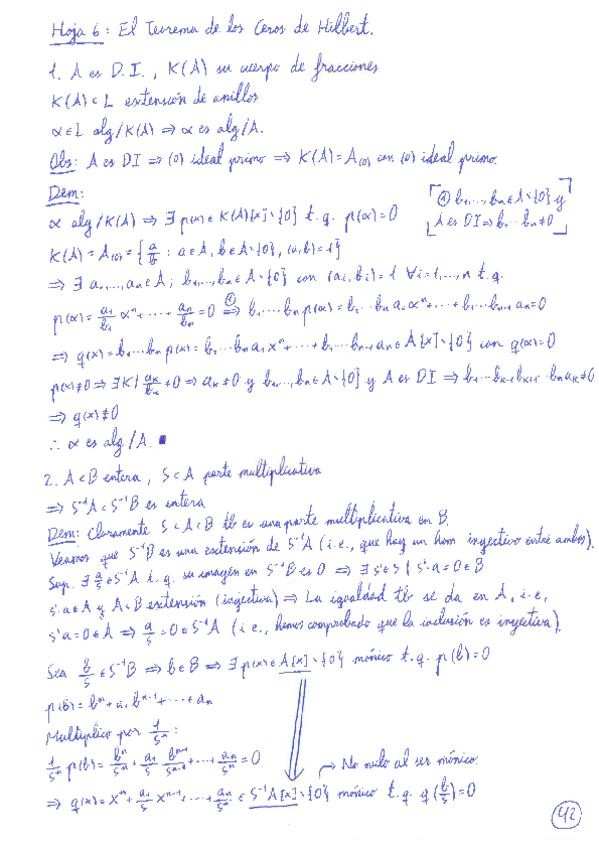 Hoja 6: El Teorema de los Ceros de Hilbert.
1. A es D.I., K(A) su cuerpo de fracciones
K(A) ⊂ L extensión de anillos
α∈L alg/K(A) ⇒ α es alg/A.
Obs: A es DI ⇒ (0) ideal primo ⇒ K(A)=A₍₀₎ con (0) ideal primo.
Dem:
α alg/K(A) ⇒ ∃ p(x)∈K(A)[x]\{0} t.q. p(α)=0
⊛ b₁,...,bₙ∈A\{0} y
A es DI ⇒ b₁···bₙ≠0
K(A)=A₍₀₎={a/b : a∈A, b∈A\{0}, (a,b)=1}
⇒ ∃ a₁,...,aₙ∈A; b₁,...,bₙ∈A\{0} con (aᵢ,bᵢ)=1 ∀i=1,...,n t.q.
p(α)=a₁/b₁ αⁿ+···+aₙ/bₙ=0 ⊛⇒ b₁···bₙp(α)=b₂···bₙa₁αⁿ+···+b₁···bₙ₋₁aₙ=0
⇒ q(x)=b₁···bₙp(x)=b₂···bₙa₁xⁿ+···+b₁···bₙ₋₁aₙ∈A[x]\{0} con q(α)=0
p(x)≠0 ⇒ ∃K | aₖ/bₖ≠0 ⇒ aₖ≠0 y b₁,...,bₙ∈A\{0} y A es DI ⇒ b₁···bₖ₋₁bₖ₊₁···bₙaₖ≠0
⇒ q(x)≠0
∴ α es alg/A. ■
2. A⊂B entera, S⊂A parte multiplicativa
⇒ S⁻¹A⊂S⁻¹B es entera
Dem: Claramente S⊂A⊂B tb es una parte multiplicativa en B.
Veamos que S⁻¹B es una extensión de S⁻¹A (i.e., que hay un hom inyectivo entre ambos).
Sup. ∃ a/s∈S⁻¹A t.q. su imagen en S⁻¹B es 0 ⇒ ∃ s'∈S | s'·a=0∈B
s'·a∈A y A⊂B extensión (inyectiva) ⇒ La igualdad tb se da en A, i.e,
s'a=0∈A ⇒ a/s=0∈S⁻¹A (i.e., hemos comprobado que la inclusión es inyectiva).
Sea b/s∈S⁻¹B ⇒ b∈B ⇒ ∃p(x)∈A[x]\{0} mónico t.q. p(b)=0
p(b)=bⁿ+a₁bⁿ⁻¹+···+aₙ
Multiplico por 1/sⁿ:
1/sⁿ p(b)=bⁿ/sⁿ+a₁/s bⁿ⁻¹/sⁿ⁻¹+···+aₙ/sⁿ=0
→ No nulo al ser mónico.
⇒ q(x)=xⁿ+a₁/s xⁿ⁻¹+···+aₙ/sⁿ∈S⁻¹A[x]\{0} mónico t.q. q(b/s)=0
42